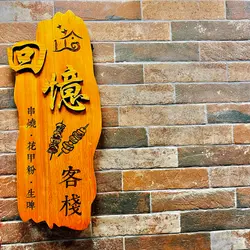 拾
回憶
客棧
串燒·花甲粉·生啤